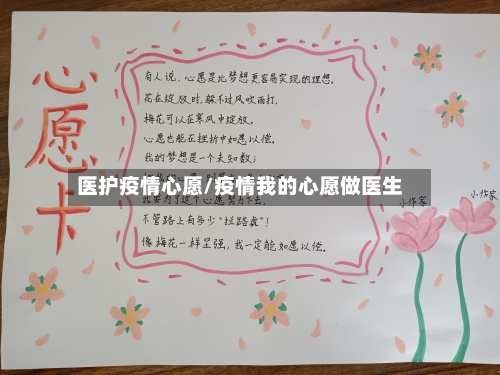 心愿卡
小作家
有人说，心愿是比梦想更容易实现的理想。
花在绽放时，躲不过风吹雨打，
梅花可以在寒风中绽放，
心愿也能在挫折中如愿以偿。
我的梦想是一个未知数；
医护疫情心愿/疫情我的心愿做医生
我要为了这个心愿努力下去，
不管路上有多少“拦路虎”！
像梅花一样坚强，我一定能如愿以偿。
小作家
小作家